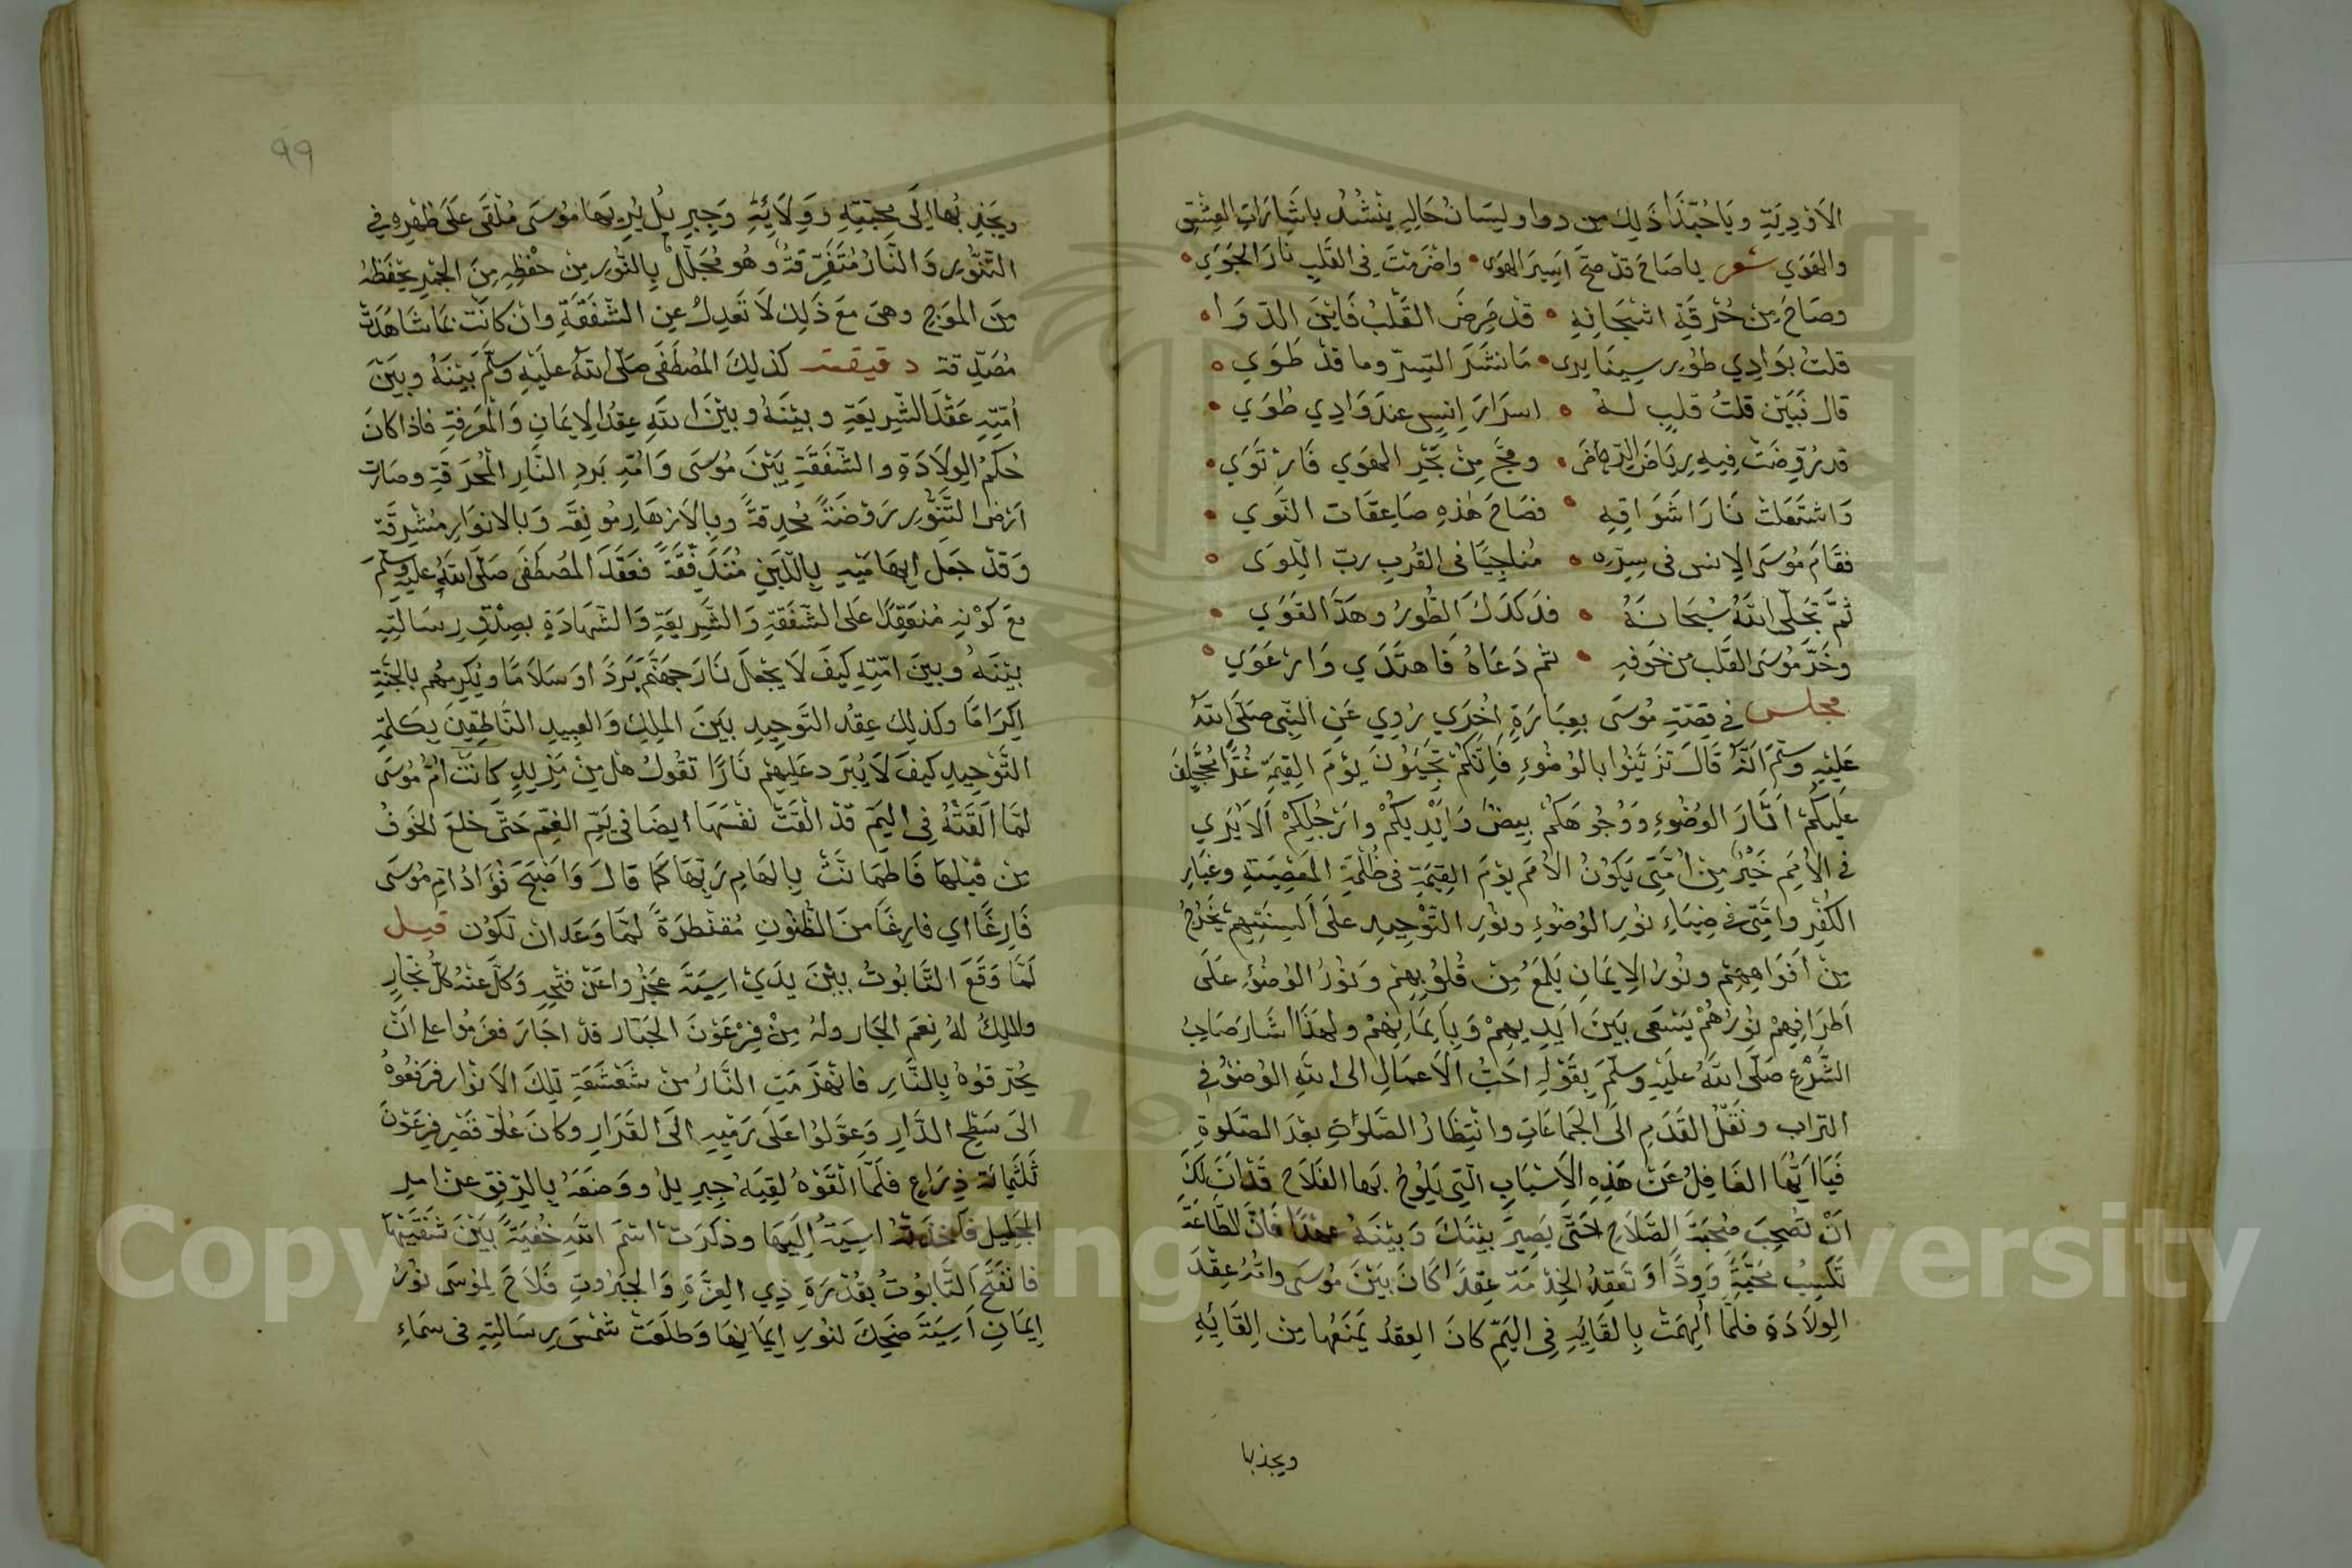 الاَوْدِيَةِ ويَا حُبَّذَا ذَلِكَ مِن دوا ولِسَانُ حَالِهِ يُنْشِدُ بِاشَارَاتِ العِشْقِ
والهَوَي شعر يا صَاحَ قَدْ صَحَّ اَسِيرَ الهَوَى • واضْرَمْتَ فِى القَلْبِ نَارَ الجَوَي •
وصَاحَ مِنْ حُرْقَةِ اشْجَانِهِ • قدْ مَرِضَ القَلْبُ فَايْنَ الدّوَا •
قلتُ بوَادِي طُورِ سِينَا يرى • مَا نَشَرَ السِّرّ وما قدْ طَوَي •
قال نَبَيّن قلتُ قلبٍ لهُ • اسرَارَ اِنسٍ عندَ وَادِي طُوَي •
قد رُوِّضَتْ فِيهِ رِيَاضَ الرّضَى • ومَجَّ مِنْ بَحْرِ الهَوَي فَارْتَوَي •
وَاشْتَعَلَتْ نَارَ اشَوَاقِهِ • فصَاحَ هٰذهِ صَاعِقَات النَّوَي •
فقَامَ مُوسَى الاِنس فى سِرّهِ • مُناجِيًا فى القُربِ ربّ اللِّوَى •
ثُمَّ تَجَلّى اللهُ سُبْحَانَهُ • فدَكدَكَ الطُورُ وهَدَّ القَوَي •
وخَرَّ مُوسَى القَلب من خَوفِهِ • ثم دَعَاهُ فَاهتَدَي وَارْعَوَي •
مجلس فى قِصّةِ مُوسَى بعِبَارَةٍ اُخْرَي رُوِي عَنِ النَّبِى صَلّى اللهُ
عَلَيْهِ وسَلَّمَ اَنَّهُ قَالَ تَزَيَّنُوا بالوُضُوءِ فَاِنّكُمْ تَجِيئُونَ يوْمَ القِيمَةِ غُرًّا مُحَجَّلِينَ
عَلَيكُمْ اَثَارَ الوُضُوءِ ووُجُوهَكُمْ بِيضٌ وَايْدِيكُمْ وارْجُلِكمْ اَلَا يُرَي
فى الاُمَمِ خَيْرٌ مِنْ اُمَّتِى يَكُونُ الاُمَم يوْمَ القِيمَةِ فى ظُلْمَةِ المَعْصِيَةِ وغُبَارِ
الكُفْرِ وامَّتِى فى ضِيَاءِ نُورِ الوُضُوءِ ونُورِ التّوْحِيدِ علَى اَلسِنَتِهِمْ يَخْرُجُ
مِنْ اَفوَاهِهِمْ ونُورُ الاِيمَانِ يَلْمَعُ مِنْ قُلُوبِهِمْ ونُورُ الوُضُوءِ عَلَى
اَطرَافِهِمْ نُورُهُمْ يَسْعَى بَينَ اَيدِيهِمْ وَبِاَيمَانِهِمْ ولهَذَا اشَارَ صَاحِبُ
الشَّرْعِ صَلّى اللهُ عَلَيْهِ وسلّمَ بِقَوْلِهِ احَبُّ الاَعمَالِ الى اللهِ الوُضوُءُ فى
التراب ونَقْلُ القَدَمِ الى الجَمَاعَاتِ وانْتِظَارُ الصَّلوٰاتِ بعْدَ الصَّلوٰةِ
فَيَا اَيُّهَا الغَافِلُ عَنْ هَذِهِ الاَسْبَابِ الّتِى يَلُوحُ بهَا الفَلَاحِ قَدْ اٰنَ لَكَ
اَنْ تُصْحِبَ صُحْبَةَ الصَّلَاحِ حَتّى يَصِيرَ بَيْنَكَ وَبَيْنَهُ عهْدًا فَانَّ الطَّاعَةَ
تَكسِبُ مَحَبَّةً وَوِدًّا وتَعقِدُ الخِدْمَةَ عِقدًا كَانَ بَيْنَ مُوسَى وامّهُ عِقْدَ
الوِلَادَةِ فلَمَّا اُلهِمَتْ بِالقَائِهِ فِى اليَمّ كانَ العِقدُ يَمْنَعُها مِنْ اِلقَائِهِ
ويجذبها
٩٩
ويَجْذِبُها اِلَى مَحَبَّتِهِ وَوِلَايَتِهِ وَجِبرِيلُ يُرِيهَا مُوسَى مُلْقَى عَلَى ظَهْرِهِ فِى
التَّنُّورِ وَالنَّارُ مُتَفَرِّقَةٌ وهُو مُجَلَّلٌ بِالنُّورِ مِنْ حفْظِهِ مِنَ الجَمْرِ يَحْفَظهُ
مِنَ المَوجِ وهىَ مَعَ ذَلِكَ لَا تَعدِلُ عنِ الشّفَقَةِ وانْ كانَتْ بمَا شَاهَدَتْ
مُصَدّقةً دقيقة كذلِكَ المُصْطَفَى صَلّى اللهُ عَلَيْهِ وَسَلّمَ بَيْنَهُ وبيْنَ
اُمَّتِهِ عَقْدَ الشّرِيعَةِ وبيْنَهُ وبيْنَ اللهِ عِقدُ الاِيمَانِ وَالمَعْرِفةِ فاذا كانَ
حُكمُ الوِلَادَةِ والشّفَقَةِ بَيْنَ مُوسَى وَامّهِ بَردِ النَّارِ المُحْرِقَةِ وصَارت
اَرْضُ التَّنُّورِ رَوْضَةً مُحدِقةً وبِالاَزهَارِ مُونِقَه وَبالانوَارِ مُشْرِقَة
وَقدْ جعَل اِبهَامَيْهِ بِاللَّبَنِ مُتَدَفّقَةً فعَقْدَ المُصْطَفَى صَلّى اللهُ عليهِ وسَلّمَ
مَعَ كَوْنِهِ مُنعَقِدًا عَلى الشّفَقَةِ وَالشّرِيعَةِ وَالشّهَادَةِ بصِدْقِ رِسَالتِهِ
بيْنَهُ وبينَ امّتِهِ كيفَ لَا يَجْعلَ نَارَ جهَنَّم بَرَدًا وسَلَامًا ويُكرِمُهُم بالجنّةِ
اِكرَامًا وكذلِكَ عِقْد التَّوحِيدِ بَينَ المَلِكِ وَالعَبِيدِ النَّاطِقِينَ بِكَلِمَةِ
التَّوْحِيدِ كيفَ لَا يُبَرد عَلَيهِمْ نَارًا تقُولُ هلْ مِنْ مَزِيدٍ كانَتْ اُمُّ مُوسَى
لمّا اَلقَتْهُ فِى اليَمّ قدْ القَتْ نفْسَهَا ايضا فى يَمِّ الغَمّ حَتّى خلعَ الخَوفُ
مِن قَبْلِهَا فَاطمَانَّتْ بِالهَامِ رَبّهَا كَمَا قالَ وَاَصْبَحَ فُؤَادُ اُمّ مُوسَى
فَارِغًا اي فارِغًا منَ الظُّنُونِ مُفنْطرَةً لمّا وَعَدَ ان تكوُن قيل
لمَّا وَقَعَ التَّابُوتُ بيْنَ يدَيْ اسِيَةَ عَجَزُوا عَنْ فتْحِهِ وَكلَّ عنْهُ كلُّ نجّارٍ
والمَلِكُ لهُ نِعمَ الجار ولهُ مِنْ فِرْعَوْنَ الجبّار قدْ اجَارَ فعَزَمُوا على اَنْ
يُحْرِقوُهُ بِالنَّارِ فانهَزَمَتِ النَّارُ منْ شَعْشَعَةِ تلِكَ الاَنْوَارِ فرَفعُوهُ
الىَ سَطْحِ الدَّارِ وَعوَّلوُا عَلَى رَمْيِهِ الىَ القَرَارِ وكانَ عُلوّ قَصْرِ فِرعَوْنَ
ثَلثَمِائة ذِرَاعٍ فلَمّا القَوْهُ لَقِيَهُ جِبرِيلُ ووَضعَهُ بِالرّفقِ عنْ امرِ
الجَلِيل فاَخذتْهُ اسِيَةُ اِلَيهَا وذكَرَتْ اسْمَ اللهِ خُفيَةً بَيْنَ شَفَتَيْهَا
فانفَتَحَ التَّابُوتُ بقُدْرَةِ ذِي العِزَّةِ وَالجَبَرُوتِ فَلَاحَ لمُوسَى نوْرُ
اِيمَانِ اَسِيَةَ ضَحِكَ لنُورِ اِيمَانِهَا وَطلَعَتْ شمْسَ رِسَالتِهِ فى سَمَاءِ